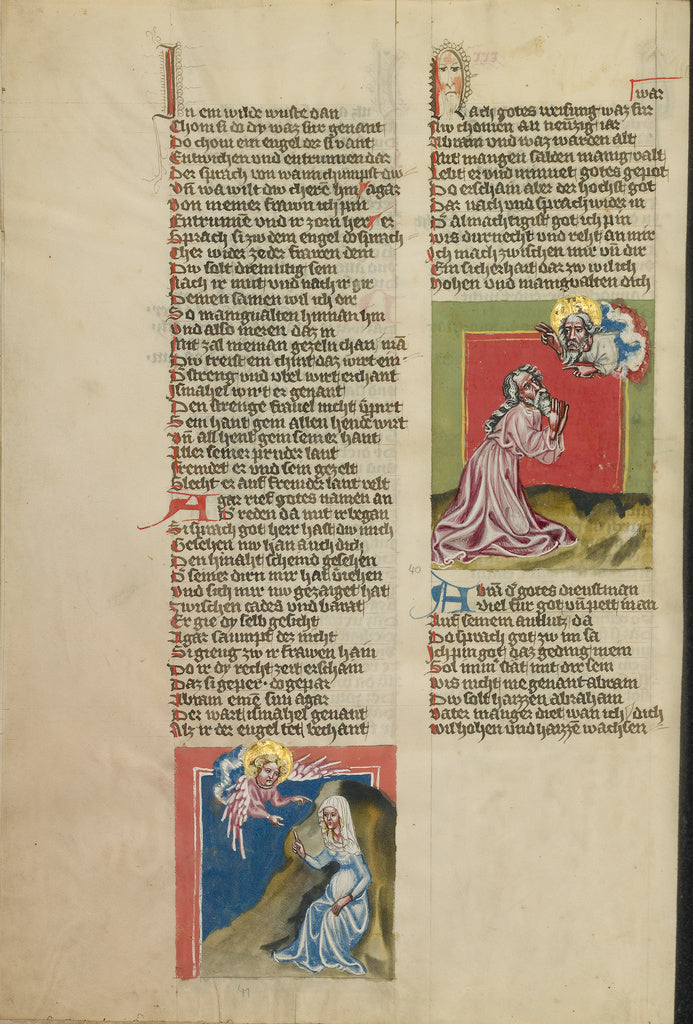 In ein wilde wuste dan
Chom si do dy waz sur genant
Do chom ein engel der si vant
Entwichen und entrunnen dar
Der sprach von wann chumpst dw
Vn̄ wa wilt dw cheren hin agar
Von meiner frawn ich pin
Entrunnē und ir zorn her er
Sprach si zw dem engel do sprach
Cher wider ze der frawen dein
Dw solt diemutig sein
Nach ir mut und nach ir gir
Deinen samen wil ich dir
So manigualten hinnan hin
Und also meren daz in
Mit zal nieman gezeln chan
Dw treist ein chint daz wirt ein
Streng und vbel wirt erchant
Ismahel wirt er genant
Den strenge frauel nicht
Sein hant gein allen hende wirt
Vn̄ all hent gein seiner hant
Aller seiner pruder lant
Fremdet er und sein gezelt
Slecht er auf fremder lant velt
Agar rief gotes namen an
Reden da mit ir began
Si sprach got herr hast dw mich
Gesehen nw han auch dich
Den hinaht schemd gesehen
seiner dirn mir hat
Und sich mir nw gezaiget hat
Zwischen cades und barat
Er gie dy selb gesicht
Agar saumpt der nicht
Si gieng zw ir frawen hain
Do ir dy recht zeit erschain
Daz si geper do gepar
Abram einē sun agar
Der wart ismahel genant
Alz ir der engel tet bechant
41
war
Nach gotes weisung waz fur
Nw chomen an neunzig iar
Abram und waz warden alt
Mit mangen salden manigualt
Lebt er und minnet gotes gepot
Do erschain aber der hochst got
Dar nach und sprach wider in
Almachtigist got ich pin
Wis dur necht und reht an mir
Ich mach zwischen mir vn̄ dir
Ein sicherhait dar zw wil ich
Hohen und manigualten dich
40
gotes dienstman
Viel fur got vn̄ pett in an
Auf seinem antlutz da
Do sprach got zw im sa
Ich pin got daz geding mein
Sol imm stat mit dir sein
Wis nicht me genant abram
Dw solt haizzen abraham
Vater manger diet wan ich dich
Wil hohen und haizzē wachsen